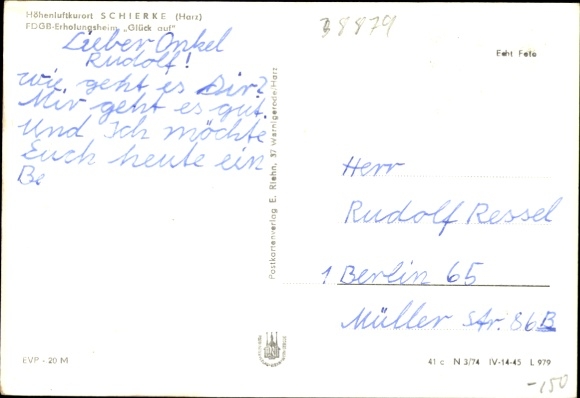 Höhenluftkurort SCHIERKE (Harz)
FDGB-Erholungsheim „Glück auf"
38879
Echt Foto
Lieber Onkel
Rudolf!
wie geht es Dir?
Mir geht es gut.
Und Ich möchte
Euch heute ein
Be
Postkartenverlag E. Riehn, 37 Wernigerode/Harz
Herr
Rudolf Ressel
1 Berlin 65
Müller str. 86B
EVP -20 M
41 c N 3/74 IV-14-45 L 979
-150